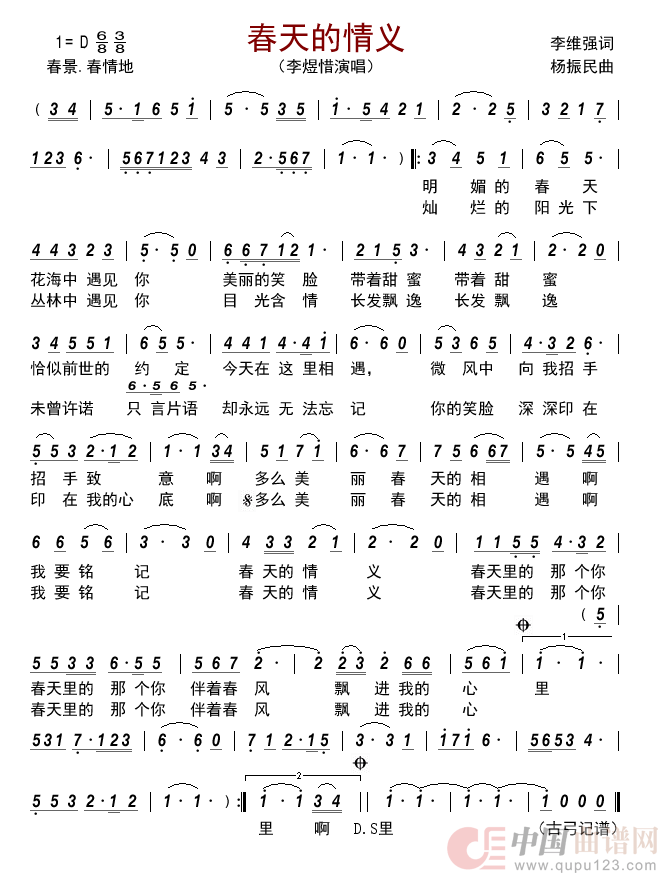 春天的情义
1= D 6/8 3/8
李维强词
春景.春情地
（李煜惜演唱）
杨振民曲
( 3 4 | 5 · 1 6 5 1 | 5 · 5 3 5 | 4 · 4 2 1 2 1 | 2 · 2 5 | 3 2 1 7 |
1 2 3 6 · | 5 6 7 1 2 3 4 3 | 2 · 5 6 7 | 1 · 1 · ) ‖: 3 4 5 1 | 6 5 5 · |
明 媚的 春 天
灿 烂的 阳光下
4 4 3 2 3 | 5 · 5 0 | 6 6 7 1 2 1 | 2 1 5 3 | 4 3 2 1 | 2 · 2 0 |
花海中 遇见 你 美丽的笑 脸 带着甜 蜜 带着 甜 蜜
丛林中 遇见 你 目 光含 情 长发飘 逸 长发 飘 逸
3 4 5 5 1 | 6 5 5 · | 4 4 2 1 4 · 4 1 | 6 · 6 0 | 5 3 6 5 | 4 · 3 2 6 · |
恰似前世的 约 定 今天在 这 里相 遇， 微 风中 向 我招 手
5 · 5 6 5
未曾许诺 只 言片语 却永远 无 法忘 记 你的笑脸 深 深印 在
5 5 3 2 · 1 2 | 1 · 1 3 4 | 5 1 7 1 | 6 · 6 7 | 7 5 6 6 7 | 5 · 5 4 5 |
招 手 致 意 啊 多么 美 丽 春 天的 相 遇 啊
印 在 我的心 底 啊 𝄋多么 美 丽 春 天的 相 遇 啊
6 6 5 6 | 3 · 3 0 | 4 3 3 2 1 | 2 · 2 0 | 1 1 5 5 | 4 · 3 2 |
我 要 铭 记 春 天的 情 义 春天里的 那 个你
我 要 铭 记 春 天的 情 义 春天里的 那 个你
( 5
1
5 5 3 3 6 · 5 5 | 5 5 6 7 2 · | 2 2 3 2 6 6 | 5 6 1 | 1 · 1 · |
春天里的 那 个你 伴着春 风 飘 进 我的 心 里
春天里的 那 个你 伴着春 风 飘 进 我的 心
5 3 1 7 · 1 2 3 | 6 · 6 · | 7 2 · 1 5 | 4 · 4 3 · | 1 7 1 6 · | 5 6 5 3 4 · |
2
5 5 3 2 · 1 2 | 1 · 1 · ) :‖ 1 · 1 3 4 ‖ 1 · 1 · | 1 0 0 0 ‖
里 啊 D.S里 （古弓记谱）
中国曲谱网
www.qupu123.com